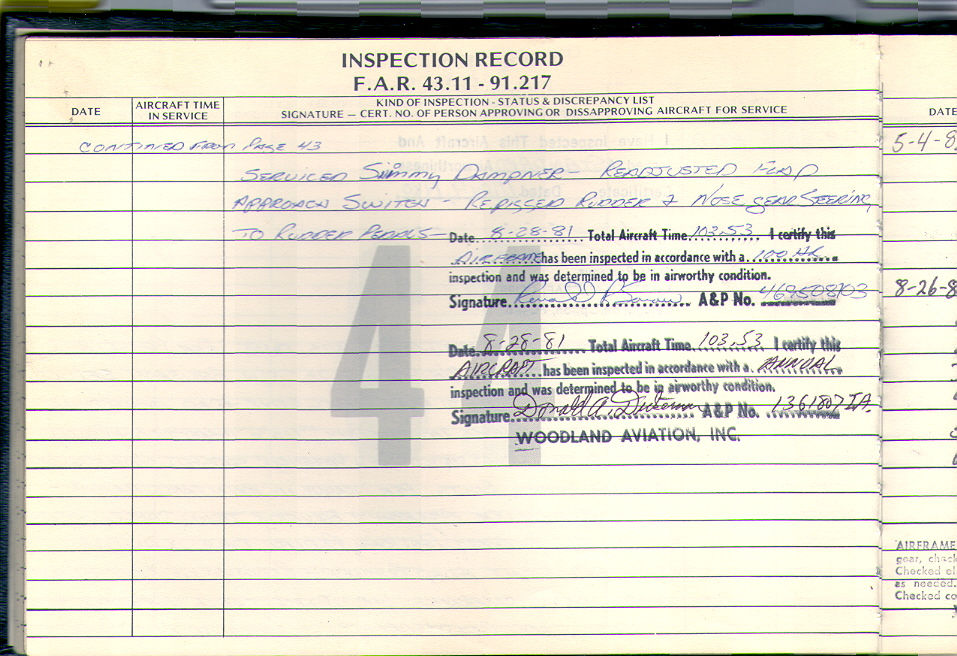 INSPECTION RECORD
F.A.R. 43.11 - 91.217
DATE
AIRCRAFT TIME
IN SERVICE
KIND OF INSPECTION - STATUS & DISCREPANCY LIST
SIGNATURE — CERT. NO. OF PERSON APPROVING OR DISSAPPROVING AIRCRAFT FOR SERVICE
CONTINUED FROM PAGE 43
SERVICED SHIMMY DAMPNER - READJUSTED FLAP
APPROACH SWITCH - RERIGGED RUDDER & NOSE GEAR STEERING
TO RUDDER PEDALS -
Date 8-28-81 Total Aircraft Time 103.53 I certify this
AIRFRAME has been inspected in accordance with a 100 HR
inspection and was determined to be in airworthy condition.
Signature A&P No.
44
Date 8-28-81 Total Aircraft Time 103.53 I certify this
AIRCRAFT has been inspected in accordance with a ANNUAL
inspection and was determined to be in airworthy condition.
Signature Donald A. A&P No. 1361807 IA.
WOODLAND AVIATION, INC.
DATE
5-4-8
8-26-8
AIRFRAME
gear, check
Checked el
as needed.
Checked co